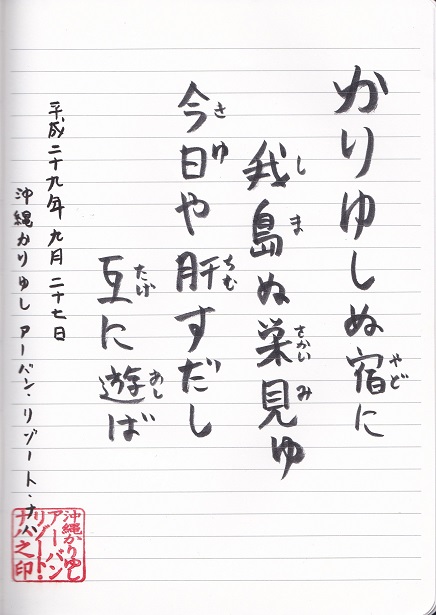 かりゆしぬ宿に
やど
我島ぬ栄見ゆ
しま さかい み
今日や肝すだし
きゆ ちむ
互に遊ば
たげ あし
平成二十九年九月二十七日
沖縄かりゆしアーバン・リゾート・ナハ
沖縄かりゆし
アーバン
リゾート・
ナハ之印